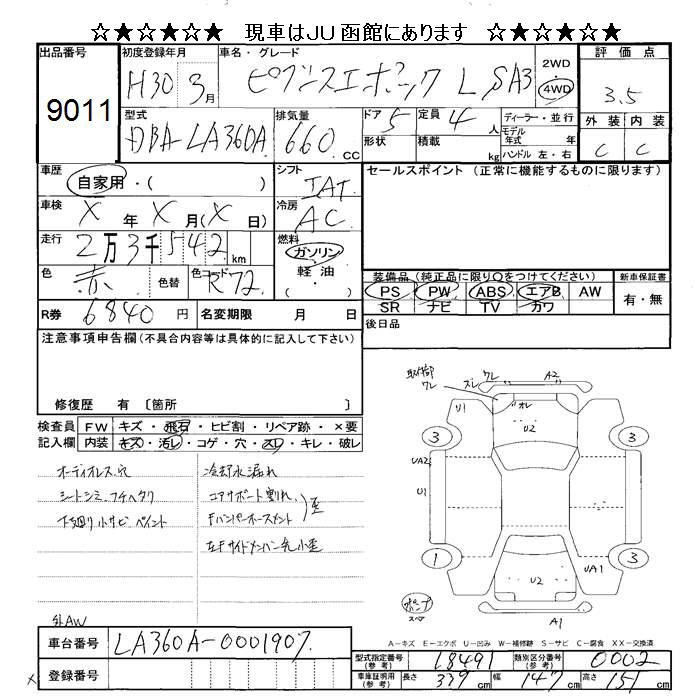 ☆★☆★☆★ 現車はJU函館にあります ☆★☆★☆★
出品番号 初度登録年月 車名・グレード 2WD 評価点
9011 H30 3月 ピクシスエポック L SA3 4WD 3.5
型式 排気量 ドア 定員 ディーラー・並行 外装 内装
DBA-LA360A 660 CC 5 4人 モデル年式 年 C C
形状 積載 kg ハンドル 左・右
車歴 シフト セールスポイント(正常に機能するものに限ります)
自家用・( ) IAT
車検 冷房
X年 X月(X日) AC
走行 燃料
2万3千542km ガソリン
軽油
・( )
色 色替 色コード 装備品(純正品に限り○をつけてください) 新車保証書
赤 R72 PS PW ABS エアB AW 有・無
SR ナビ TV カワ
R券 6840円 名変期限 月 日 後日品
注意事項申告欄(不具合内容等は具体的に記入して下さい)
修復歴 有 〔箇所 〕
検査員 FW キズ・飛石・ヒビ割・リペア跡・×要
記入欄 内装 キズ・汚レ・コゲ・穴・スレ・キレ・破レ
オーディオレス、穴 冷却水漏れ
シートシミ、フチヘタリ コアサポート割れ
下廻り小サビ、ペイント Fバンパーホースメント 歪
左Fサイドメンバー先小歪
外AW
取付部
ワレ
ズレ ワレ A2
U1 オレ
U2
3 3
UA2
U1
1 3
U2 UA1
スペア
A1
A-キズ E-エクボ U-凹み W-補修跡 S-サビ C-腐食 XX-交換済
車台番号 LA360A-0001907
型式指定番号(参考) 18491 類別区分番号(参考) 0002
登録番号
x
車庫証明用(参考) 長さ 339cm 幅 147cm 高さ 151cm